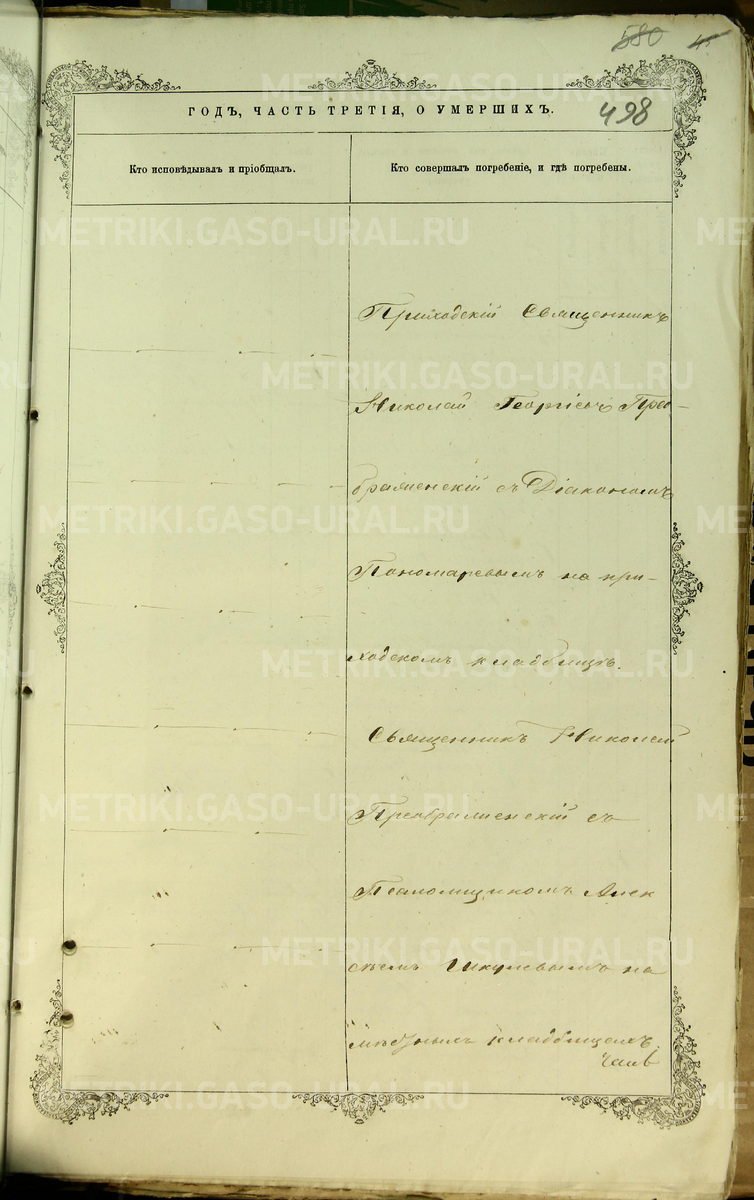 580
498
ГОДЪ, ЧАСТЬ ТРЕТІЯ, О УМЕРШИХЪ.
Кто исповѣдывалъ и пріобщалъ.
Кто совершалъ погребеніе, и гдѣ погребены.
Приходскій Священникъ
Николай Георгіевъ Прео-
браженскій съ Діакономъ
Пономаревымъ на при-
ходскомъ кладбищѣ.
Священникъ Николай
Преображенскій съ
Псаломщикомъ Алек
сѣемъ на
кладбищахъ.
METRIKI.GASO-URAL.RU